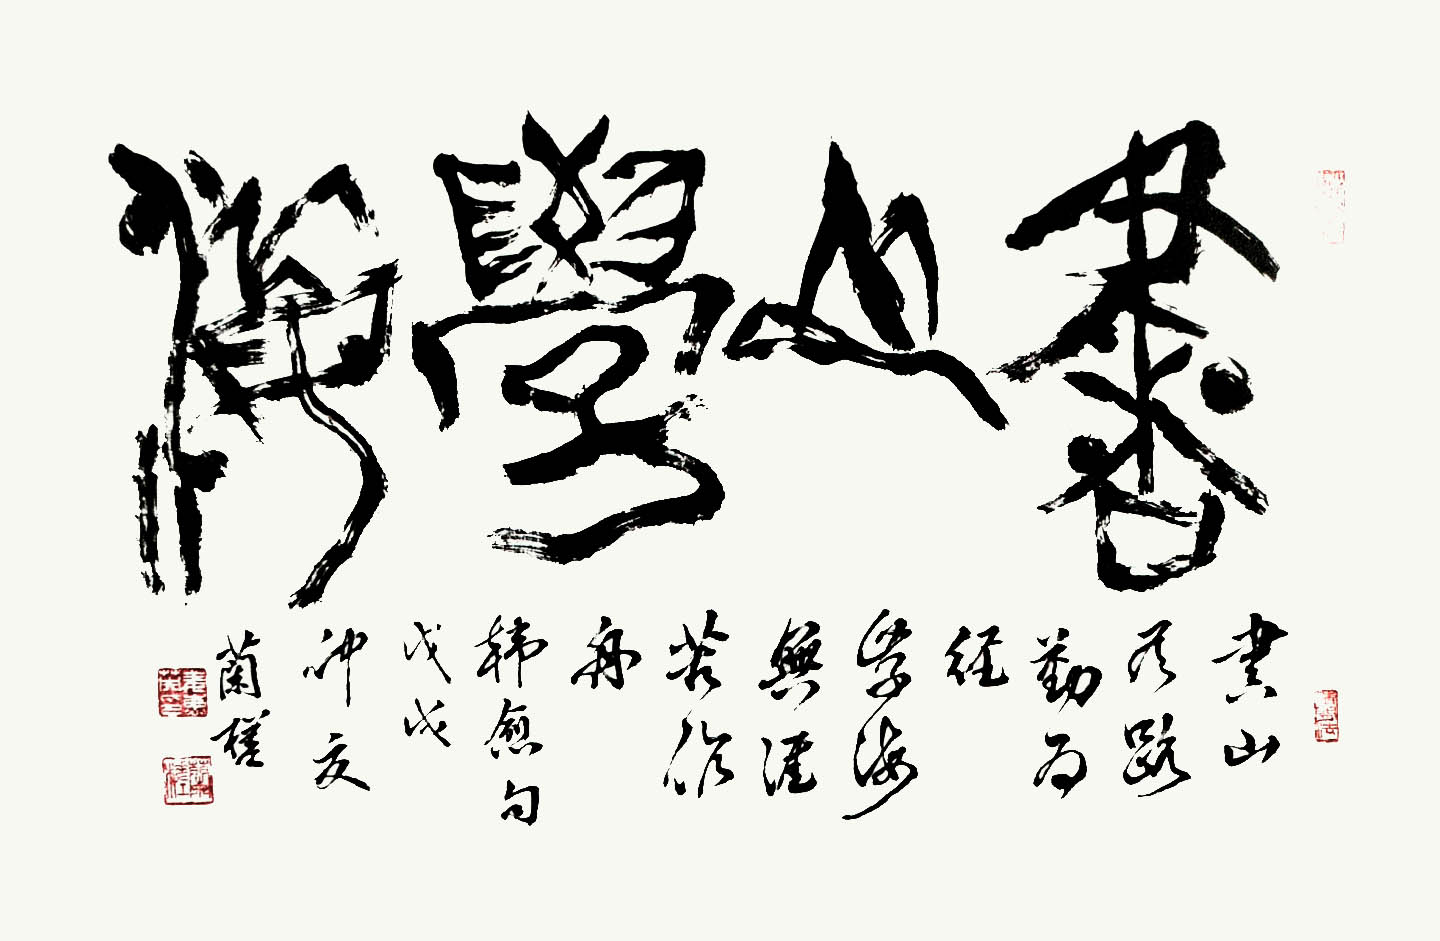 書山學海
書山
有路
勤為
径
学海
無涯
苦作
舟
韩愈句
戊戌
冲文
蘭楼